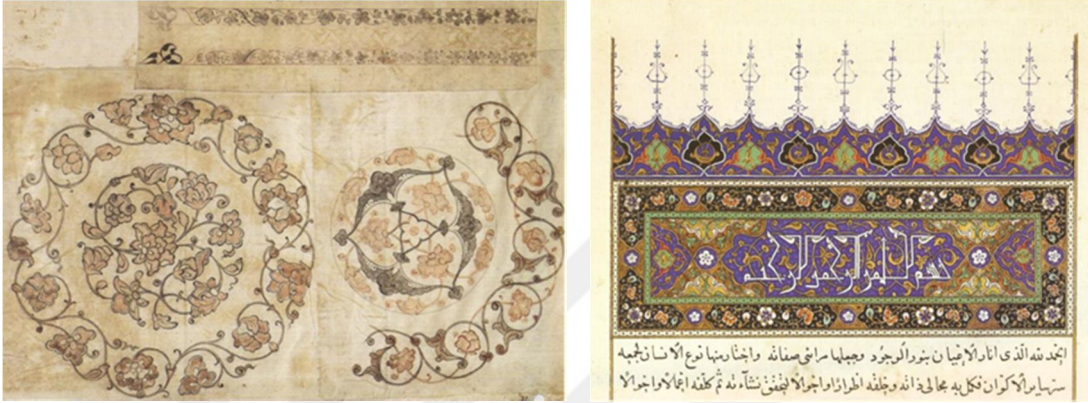 بسم الله الرحمن الرحيم
الحمد لله الذى انار الاعيان بنور الوجود وجعلها مرائى صفاته واختار منها نوع الانسان
الاكوان فكل به مجالى ذاته وخلقه اطوارا واحوالا لتحقق نشآته ثم كلفه اعمالا واحوالا